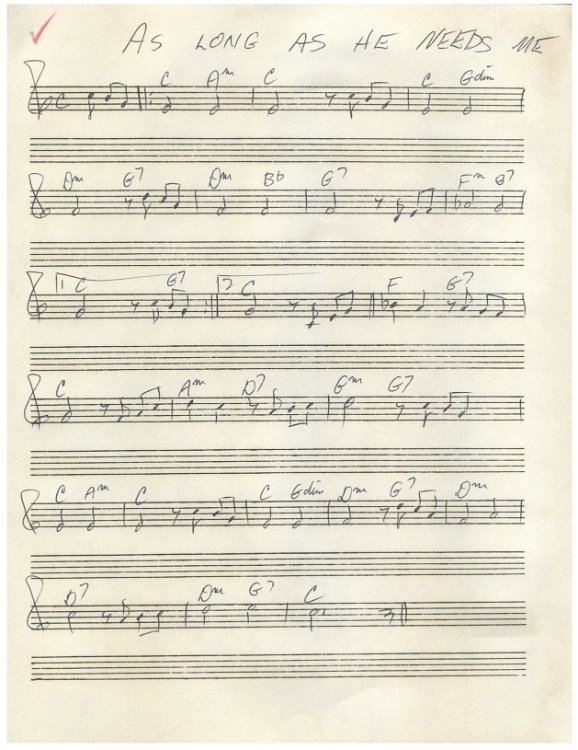 AS LONG AS HE NEEDS ME
C
C Am C C Gdim
Dm G7 Dm Bb G7 Fm G7
1 C G7 2 C F G7
C Am D7 Gm G7
C Am C C Gdim Dm G7 Dm
D7 Dm G7 C